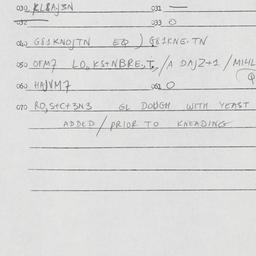 030 KL8AJ3N 031 —
032 033 O
040 G81KNOJTN EQ ) G81KNG.TN
050 OFM7 LO, KS+NBRE,T, /A DAJZ+1 / MIHL
Q
060 HAJVM7 061 O
070 RO, S+C+3N3 GL DOUGH WITH YEAST
ADDED / PRIOR TO KNEADING